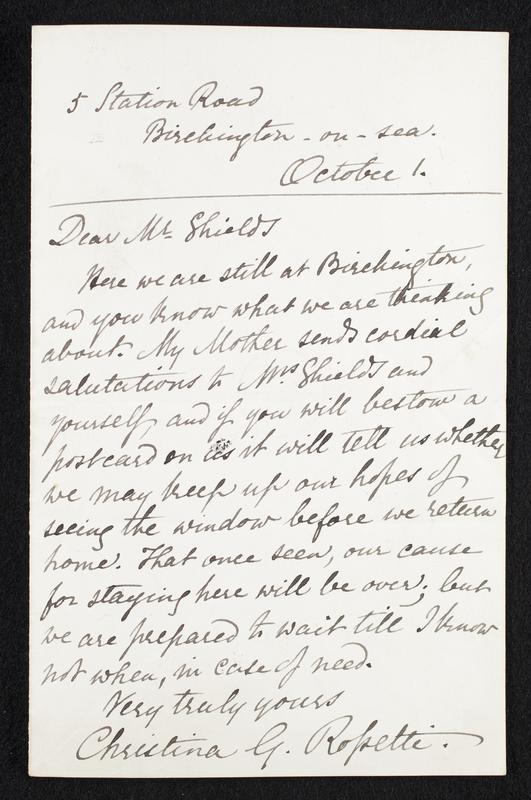 5 Station Road
Birchington - on - sea.
October 1.
Dear Mr. Shields
Here we are still at Birchington,
and you know what we are thinking
about. My Mother sends cordial
salutations to Mrs. Shields and
yourself, and if you will bestow a
postcard on us it will tell us whether
we may keep up our hopes of
seeing the window before we return
home. That once seen, our cause
for staying here will be over; but
we are prepared to wait till I know
not when, in case of need.
Very truly yours
Christina G. Rossetti.